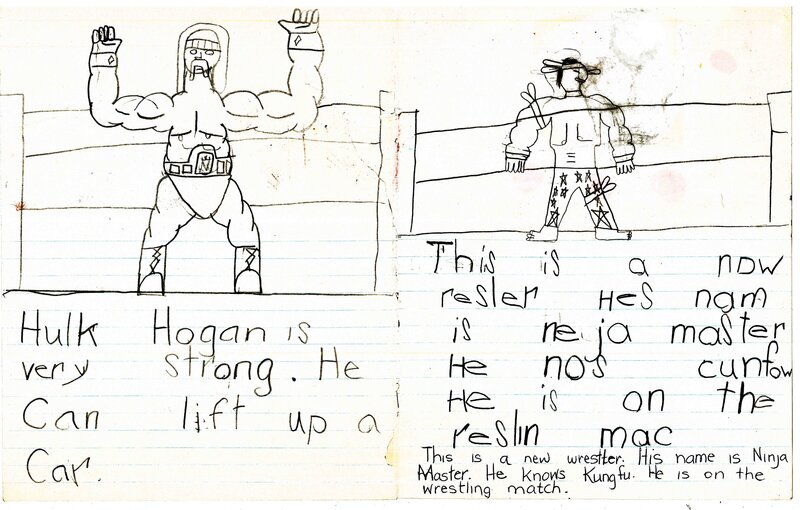 Hulk Hogan is
very strong. He
Can lift up a
Car.
This is a now
resler Hes nam
is ne ja master
He nos cunfow
He is on the
reslin mac
This is a new wrestler. His name is Ninja
Master. He knows Kungfu. He is on the
wrestling match.